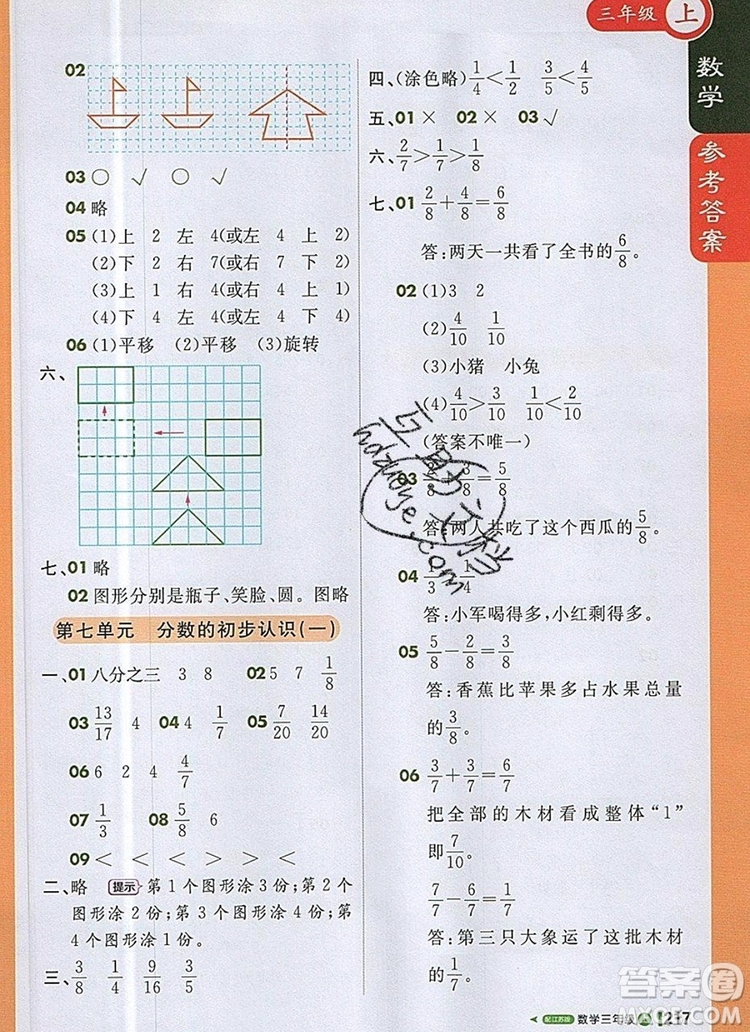 三年级 上
数学
参考答案
02
03 ○ √ ○ √
04 略
05 (1)上 2 左 4(或左 4 上 2)
(2)下 2 右 7(或右 7 下 2)
(3)上 1 右 4(或右 4 上 1)
(4)下 4 左 2(或左 2 下 4)
06 (1)平移 (2)平移 (3)旋转
六、
七、01 略
02 图形分别是瓶子、笑脸、圆。图略
第七单元 分数的初步认识(一)
一、01 八分之三 3 8 02 5 7 1/8
03 13/17 4 04 4 1/7 05 7/20 14/20
06 6 2 4 4/7
07 1/3 08 5/8 6
09 < < > > < <
二、略 提示 第1个图形涂3份;第2个
图形涂2份;第3个图形涂9份;第4
个图形涂1份。
三、3/8 1/4 9/16 3/5
四、(涂色略) 1/4<1/2 3/5<4/5
五、01 × 02 × 03 √
六、2/7>1/7>1/8
七、01 2/8+4/8=6/8
答:两天一共看了全书的6/8。
02 (1)3 2
(2)4/10 1/10
(3)小猪 小兔
(4)4/10>3/10 1/10<2/10
(答案不唯一)
03 /8+ /8=5/8
答:两人共吃了这个西瓜的5/8。
04 1/3>1/4
答:小军喝得多,小红剩得多。
05 5/8-2/8=3/8
答:香蕉比苹果多占水果总量
的3/8。
06 3/7+3/7=6/7
把全部的木材看成整体“1”
即7/10。
7/7-6/7=1/7
答:第三只大象运了这批木材
的1/7。
互助文档
hdzuoye.com
答案圈
配江苏版 数学三年级 217